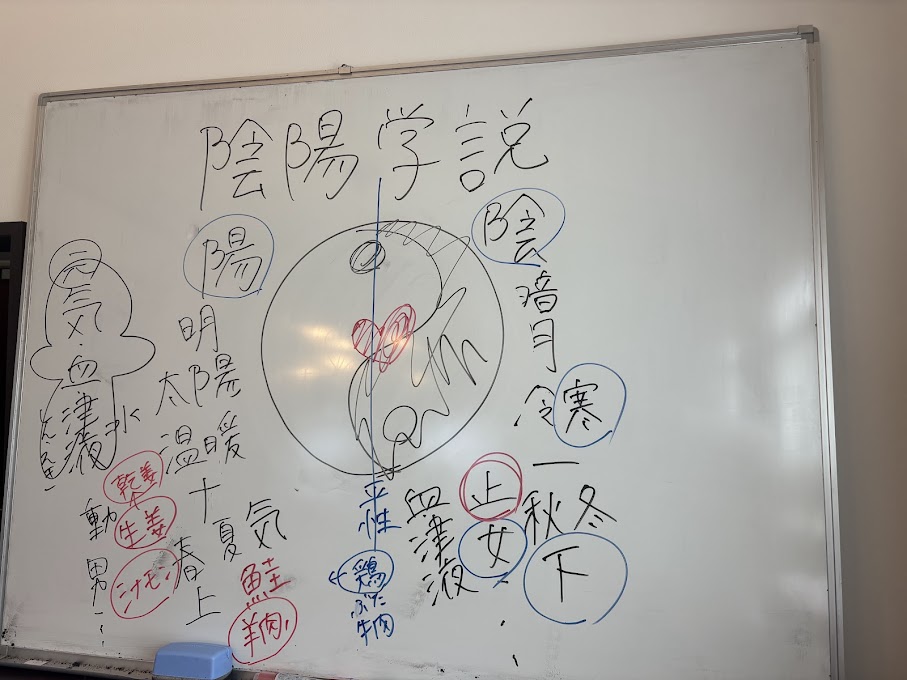 陰陽学説
陽
明
太陽
温暖
＋
春夏
上
気
動
男
元気・血
津液
水
乾姜
生姜
シナモン
鮭
羊肉
平性
鶏
ぶた
牛肉
陰
暗
月
冷寒
－
秋冬
下
止
女
血
津液